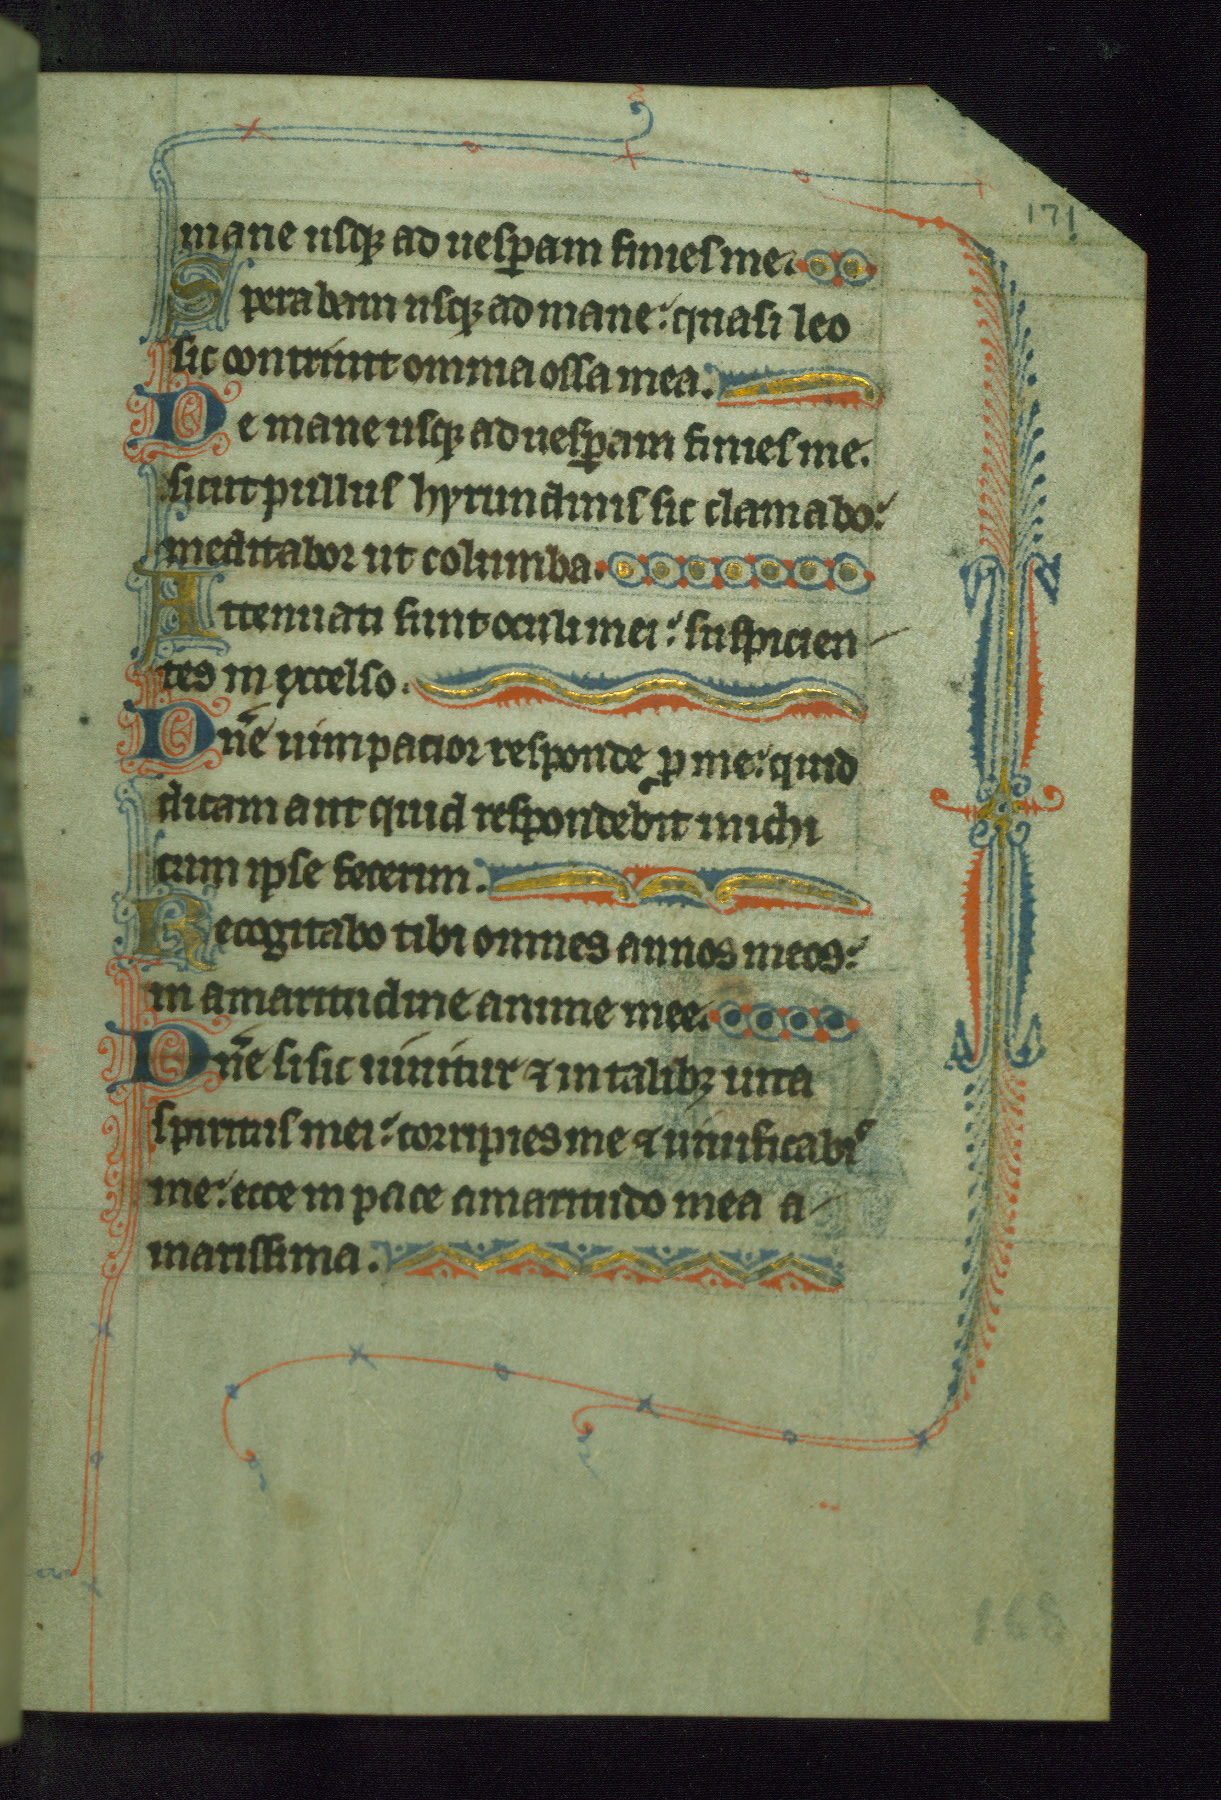 171
mane usqꝫ ad uesꝑam finies me.
Sperabam usqꝫ ad mane: quasi leo
sic contriuit omnia ossa mea.
De mane usqꝫ ad uesꝑam finies me.
sicut pullus hyrundinis sic clamabo:
meditabor ut columba.
Attenuati sunt oculi mei: suspicien
tes in excelso.
Dn̄e uim pacior responde ꝓ me: quid
dicam aut quid respondebit michi
cum ipse fecerim.
Recogitabo tibi omnes annos meos:
in amaritudine anime mee.
Dn̄e si sic uiuitur ⁊ in talibꝫ uita
spiritus mei: corripies me ⁊ uiuificabis
me: ecce in pace amaritudo mea a
marissima.
168